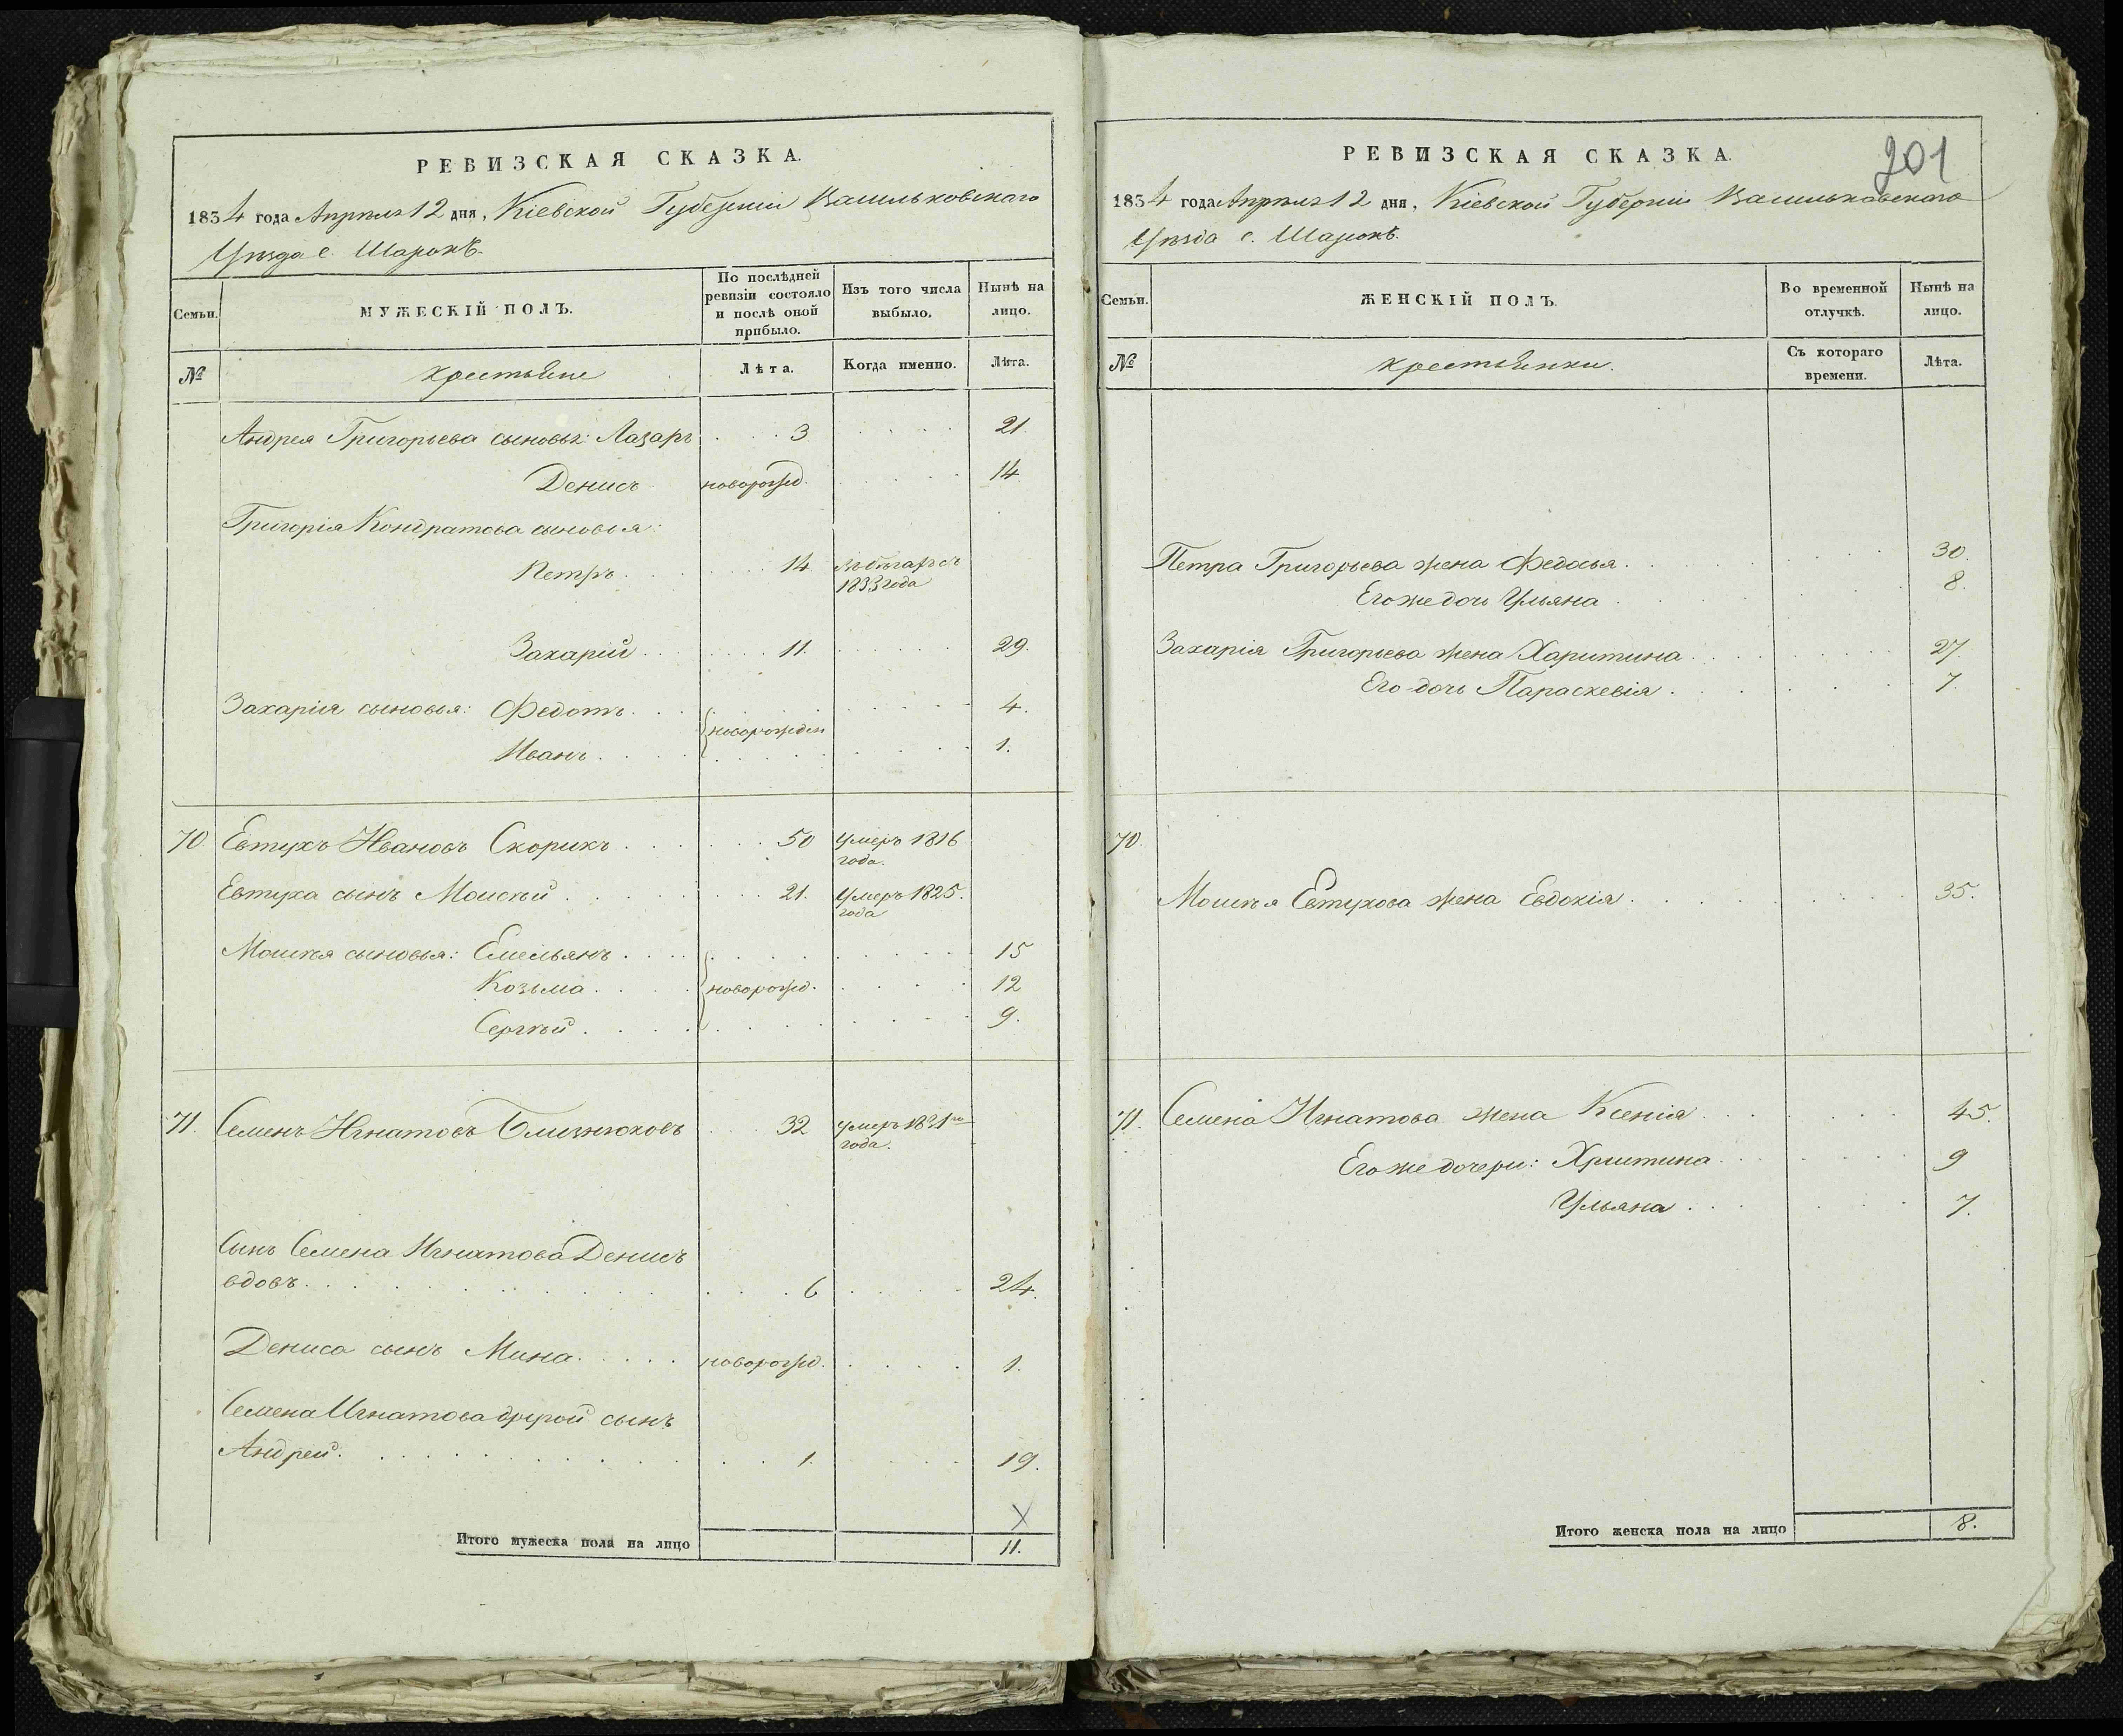 РЕВИЗСКАЯ СКАЗКА.
1834 года Апрѣля 12 дня, Кіевской Губерніи Васильковского
Уѣзда с. Шарокъ.
Семьи.
МУЖЕСКІЙ ПОЛЪ.
По послѣдней ревизіи состояло и послѣ оной прибыло.
Изъ того числа выбыло.
Нынѣ на лицо.
№
крестьяне
Лѣта.
Когда именно.
Лѣта.
Андрея Григорьева сыновья: Лазарь . . . 3 21.
Денисъ новорожд. 14
Григорія Кондратова сыновья:
Петръ . . . 14
1833 года
Захарій . . . 11. 29.
Захарія сыновья: Федотъ . . . 4.
новорожден
Иванъ . . . 1.
70 Евтухъ Ивановъ Скорикъ . . . 50 умеръ 1816
года.
Евтуха сынъ Моисѣй . . . 21. умеръ 1825.
года
Моисѣя сыновья: Емельянъ . . . 15
Козьма . . . новорожд. 12
Сергѣй . . . 9.
71. Семенъ Игнатовъ Близнюковъ . . 32 умеръ 1831го
года.
Сынъ Семена Игнатова Денисъ
вдовъ . . . 6 24.
Дениса сынъ Мина . . . новорожд. 1.
Семена Игнатова другой сынъ
Андрей . . . 1. 19.
X
Итого мужеска пола на лицо 11.
201
РЕВИЗСКАЯ СКАЗКА.
1834 года Апрѣля 12 дня, Кіевской Губерніи Васильковского
Уѣзда с. Шарокъ.
Семьи.
ЖЕНСКІЙ ПОЛЪ.
Во временной отлучкѣ.
Нынѣ на лицо.
№
крестьянки.
Съ котораго времени.
Лѣта.
Петра Григорьева жена Федосья . . . 30.
Его же дочь Ульяна . . . 8.
Захарія Григорьева жена Харитина . . . 27.
Его дочь Параскевія . . . 7.
70.
Моисѣя Евтухова жена Евдокія . . . 35.
71. Семена Игнатова жена Ксенія . . . 45.
Его же дочери: Христина . . . 9
Ульяна . . . 7.
Итого женска пола на лицо 8.